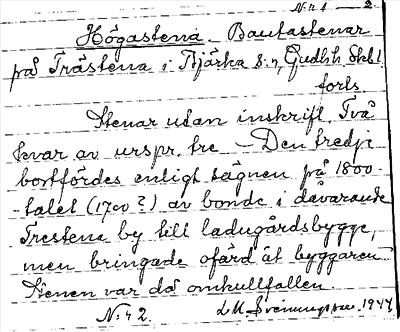 Nr 1 — 2
Högastena - Bautastenar
på Trästena i Bjärka s:n, Gudh. h. Skbl.
forts.
Stenar utan inskrift. Två
kvar av urspr. tre — Den tredje
bortfördes enligt sägnen på 1800-
talet (170v?) av bonde i dåvarande
Trestena by till ladugårdsbygge,
men bringade ofärd åt byggaren
Stenen var då omkullfallen
Nr 2. L M Svenungsson 1944